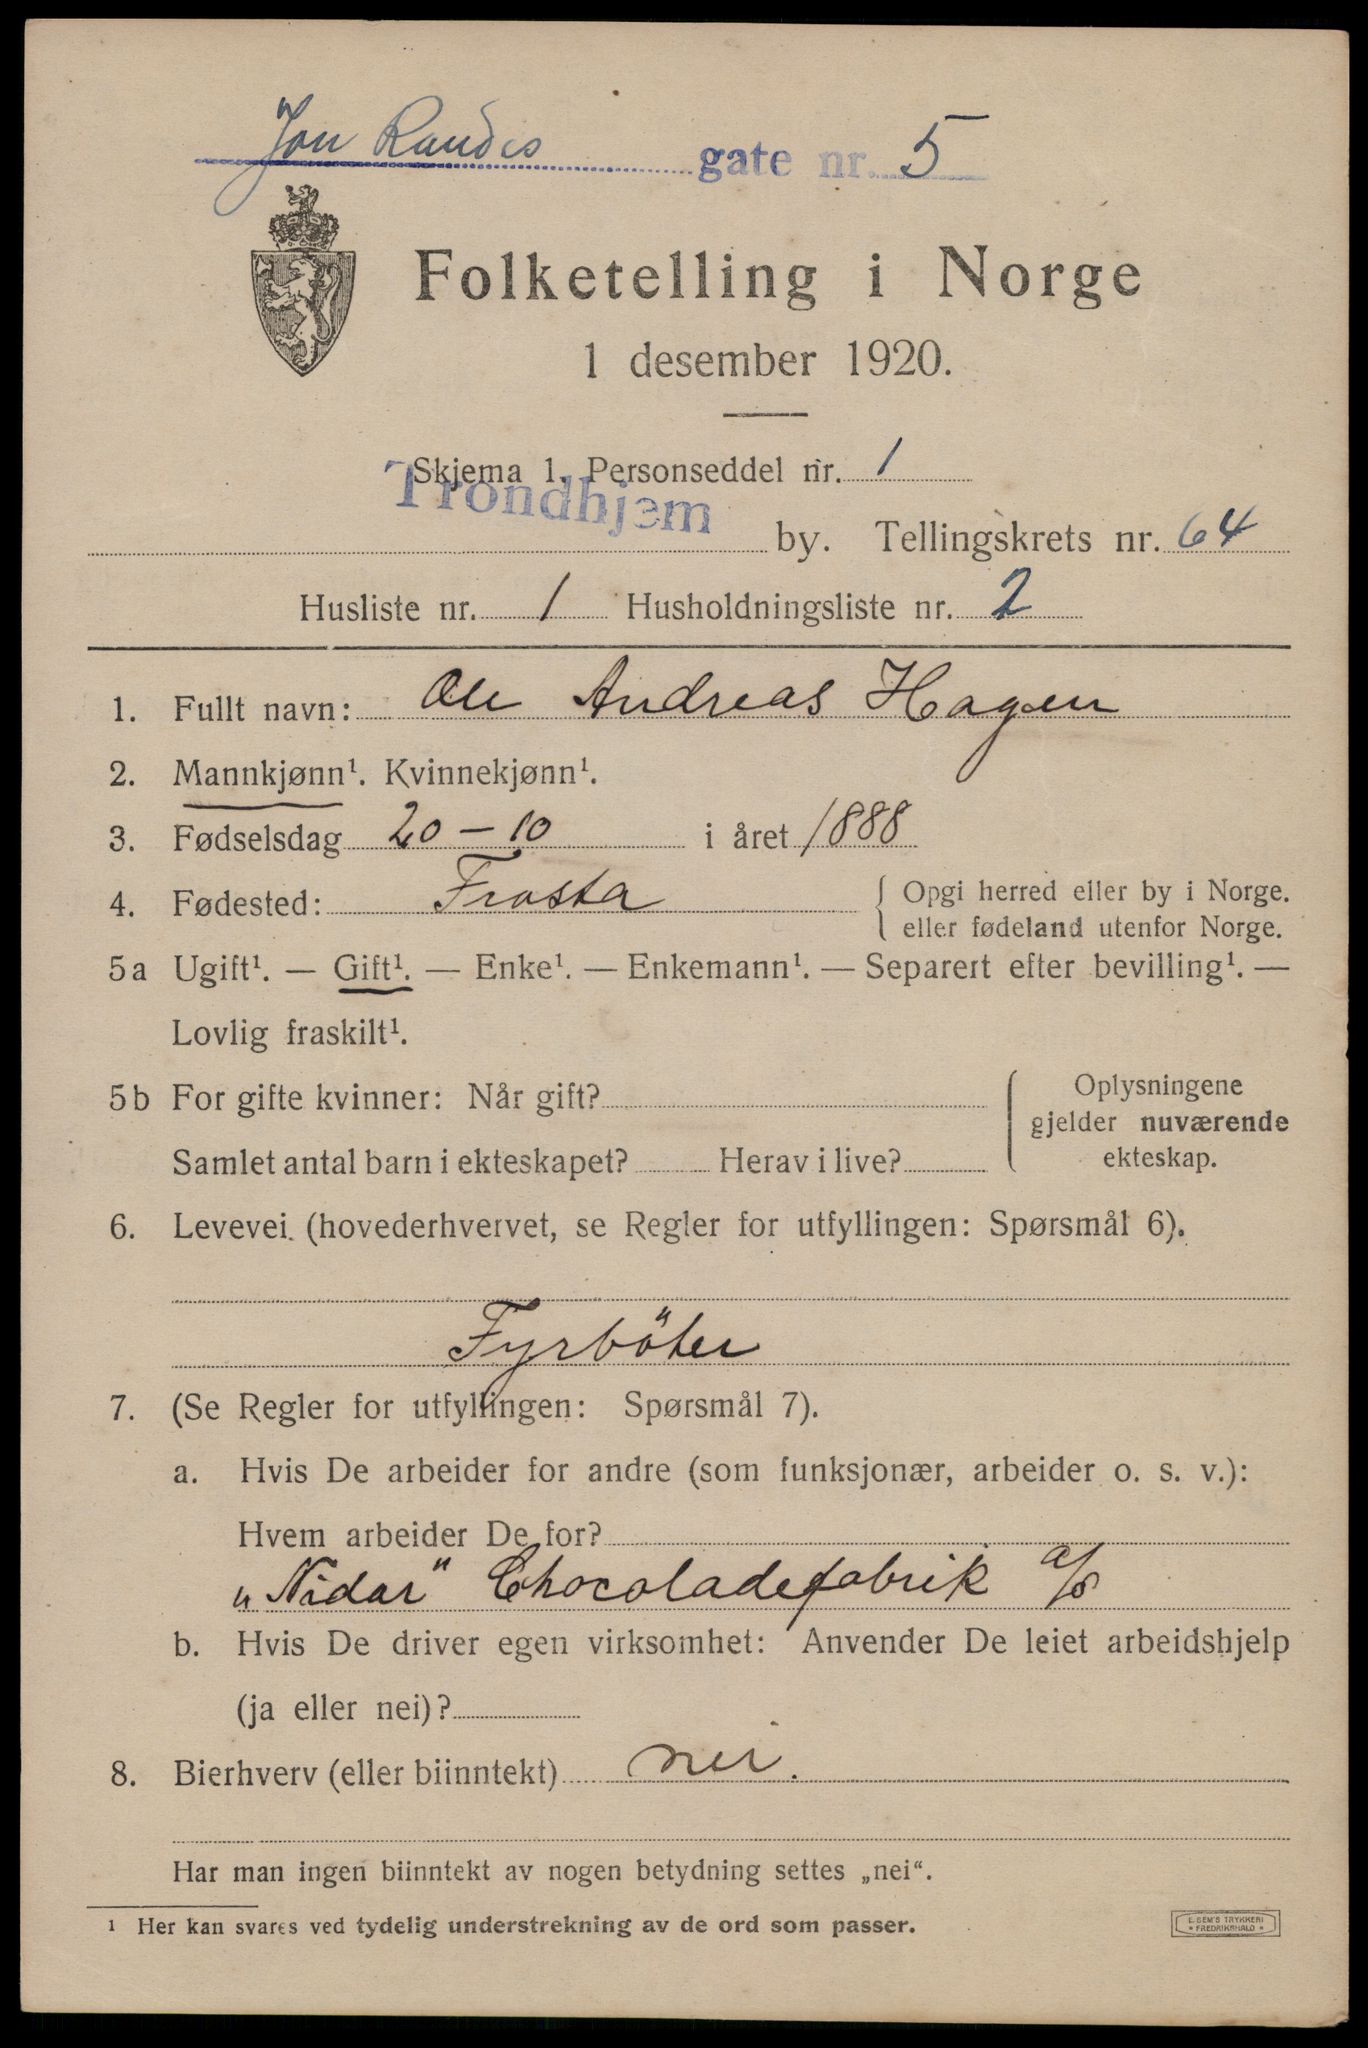 Jon Raudes gate nr. 5
Folketelling i Norge
1 desember 1920.
Skjema 1. Personseddel nr. 1
Trondhjem by. Tellingskrets nr. 64
Husliste nr. 1 Husholdningsliste nr. 2
1. Fullt navn: Ole Andreas Hagen
2. Mannkjønn¹. Kvinnekjønn¹.
3. Fødselsdag 20-10 i året 1888
4. Fødested: Frosta { Opgi herred eller by i Norge.
eller fødeland utenfor Norge.
5a Ugift¹. — Gift¹. — Enke¹. — Enkemann¹. — Separert efter bevilling¹. —
Lovlig fraskilt¹.
5b For gifte kvinner: Når gift?
Samlet antal barn i ekteskapet? Herav i live?
Oplysningene
gjelder nuværende
ekteskap.
6. Levevei (hovederhvervet, se Regler for utfyllingen: Spørsmål 6).
Fyrböter
7. (Se Regler for utfyllingen: Spørsmål 7).
a. Hvis De arbeider for andre (som funksjonær, arbeider o. s. v.):
Hvem arbeider De for?
„Nidar" Chocoladefabrik a/s
b. Hvis De driver egen virksomhet: Anvender De leiet arbeidshjelp
(ja eller nei)?
8. Bierhverv (eller biinntekt) nei.
Har man ingen biinntekt av nogen betydning settes „nei“.
¹ Her kan svares ved tydelig understrekning av de ord som passer.
E. SEM'S TRYKKERI
* FREDRIKSHALD *